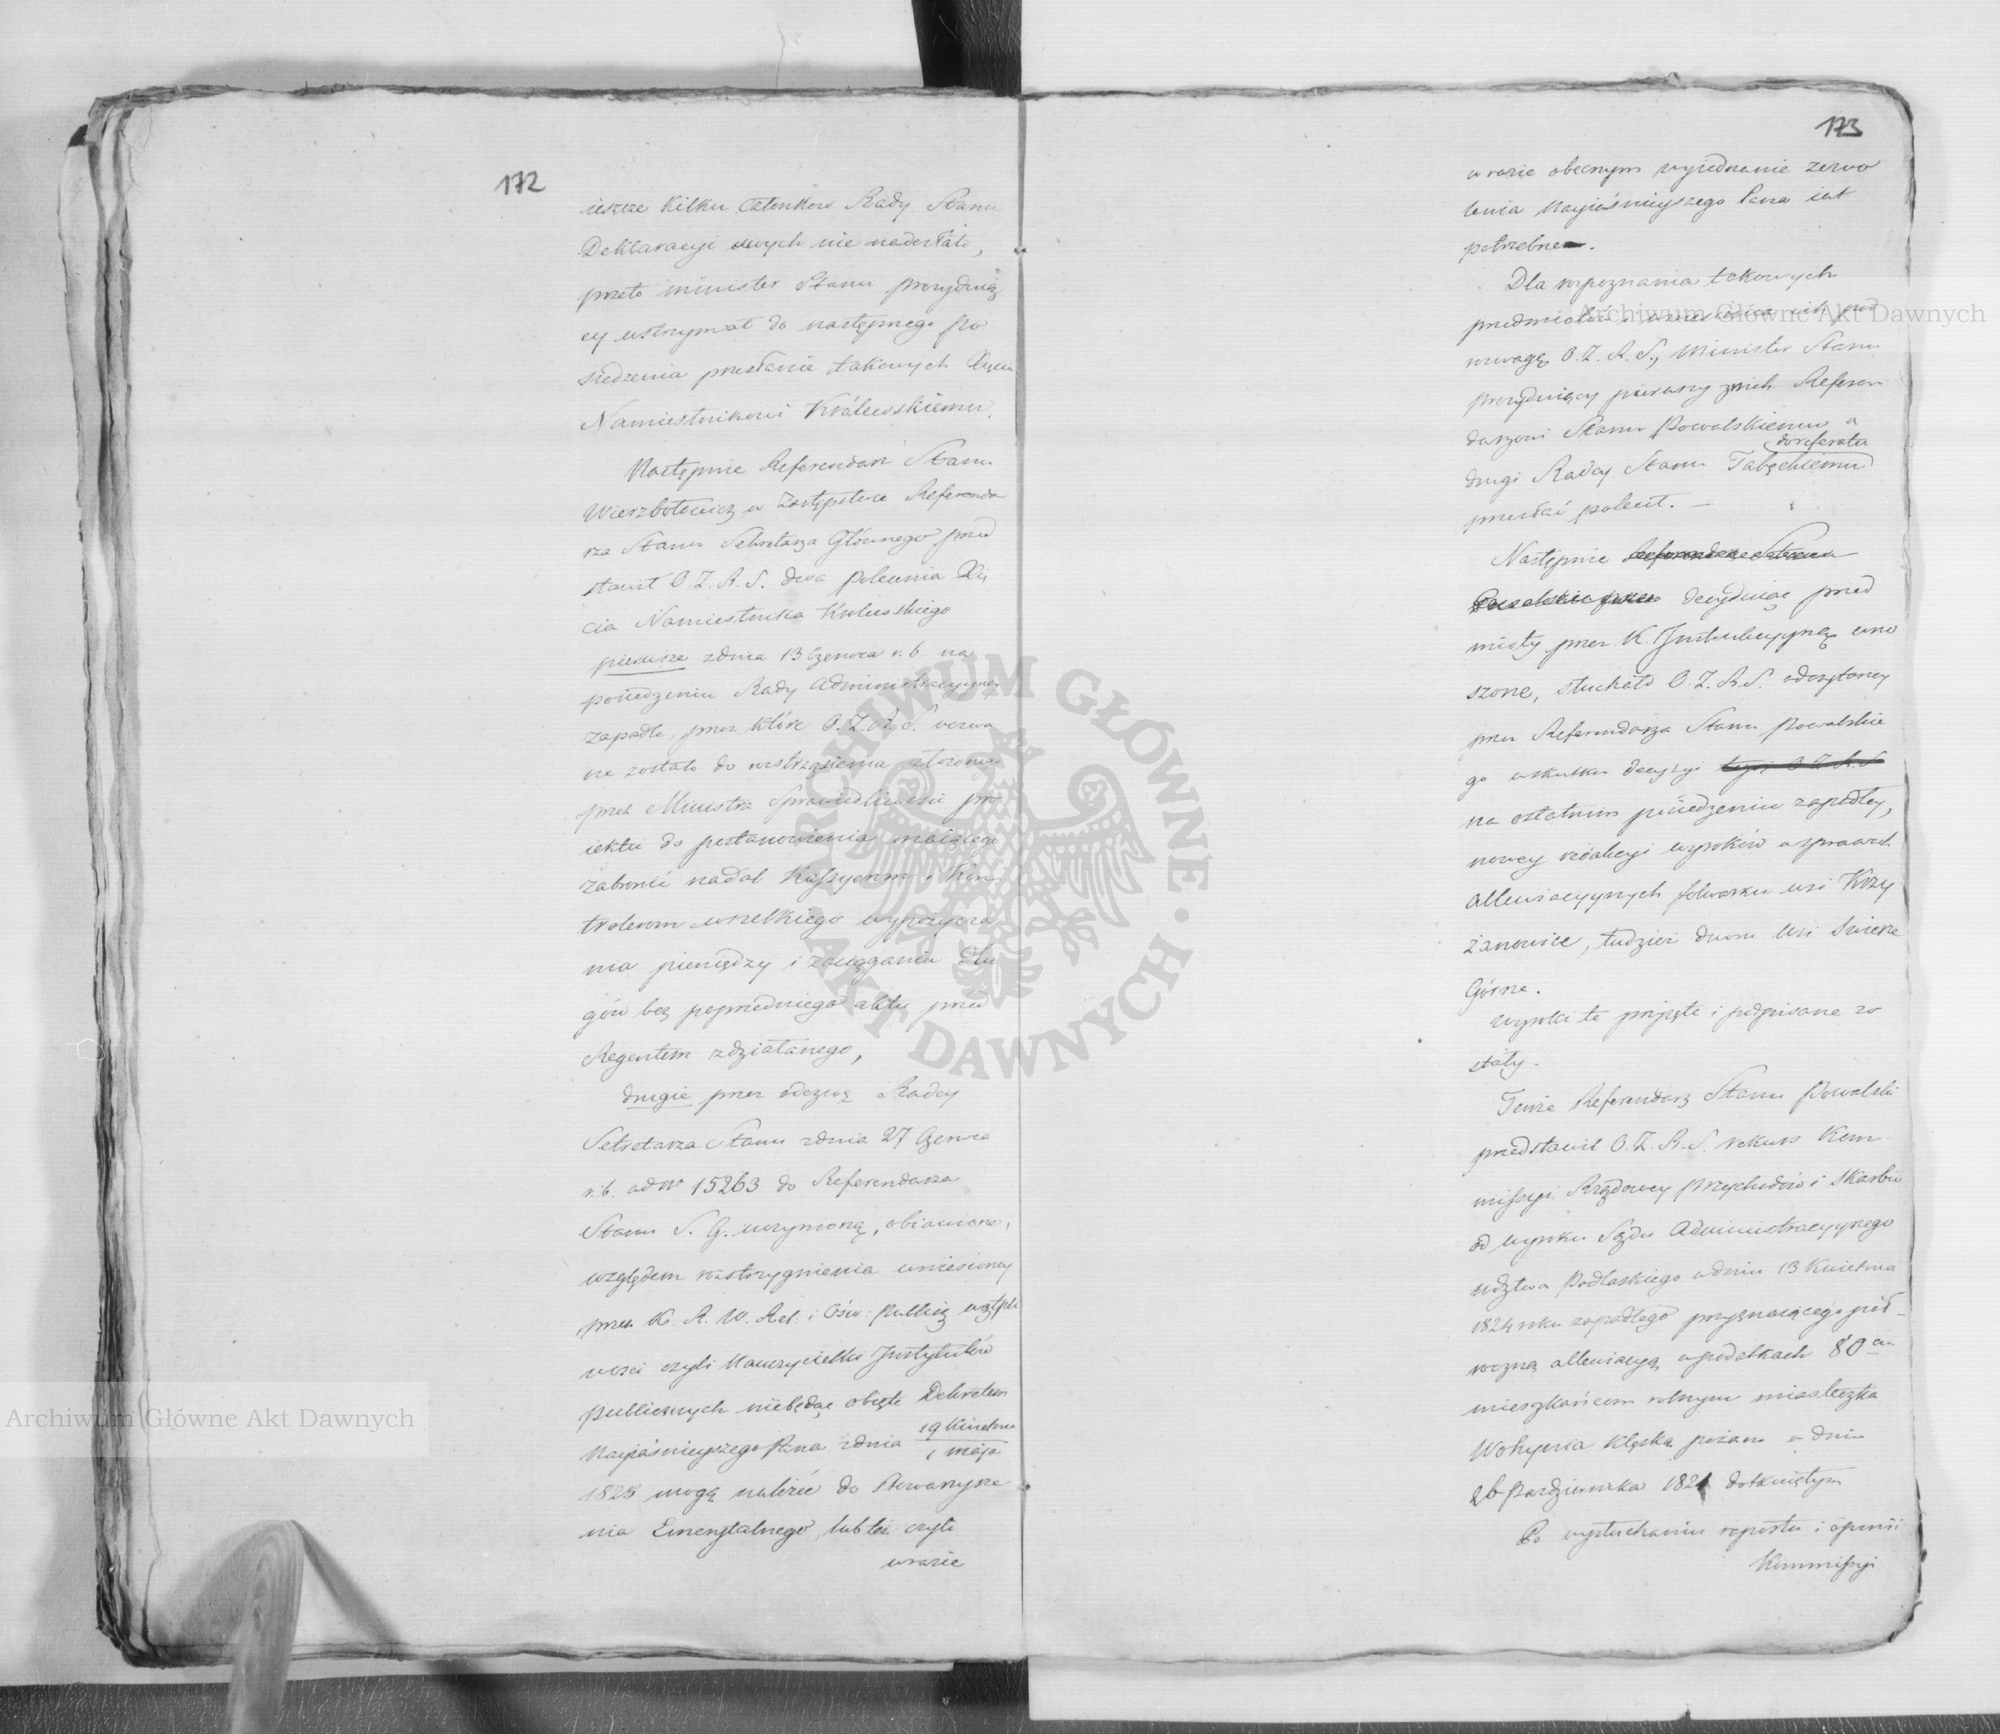 172
ieszcze kilku członków Rady Stanu
Deklaracyi swych nie nadesłało,
przeto Minister Stanu prezyduią
cy wstrzymał do następnego po
siedzenia przesłanie takowych Xięciu
Namiestnikowi Królewskiemu.
Następnie Referendarz Stanu
Wierzbołowicz w Zastępstwie Referenda
rza Stanu Sekretarza Głównego przed
stawił O. Z. R. S. dwa polecenia Xię
cia Namiestnika Królewskiego
pierwsze z dnia 13 Czerwca r. b. na
posiedzeniu Rady Administracyyney
zapadłe, przez które O. Z. R. S. wezwa
ne zostało do roztrząśnienia złożonego
przez Ministra Sprawiedliwości pro
iektu do postanowienia maiącego
zabronić nadal Kassyerom i Kon
trolerom wszelkiego wypożycza
nia pieniędzy i zaciągania dłu
gów bez poprzedniego aktu przed
Regentem zdziałanego,
drugie przez odezwę Radcy
Sekretarza Stanu z dnia 27 Czerwca
r. b. ad Nr 15263 do Referendarza
Stanu S. G. uczynioną, obiawione,
względem rozstrzygnienia wniesioney
przez K. R. W. Rel. i Ośw. Publicz wątpli
wości czyli Nauczycielki Instytutów
publicznych nie będąc obięte Dekretem
Nayiaśnieyszego Pana z dnia 19 Kwietnia
1 Maja
1825 mogą należeć do Stowarzysze
nia Emerytalnego, lub też czyli
w razie
173
w razie obecnym wyiednanie zezwo
lenia Nayiaśnieyszego Pana iest
potrzebne.
Dla rozpoznania takowych
przedmiotów i wniesienia ich pod
rozwagę O. Z. R. S., Minister Stanu
prezyduiący pierwszy z nich Referen
darzowi Stanu Kowalskiemu a
do referatu
drugi Radcy Stanu Tabęckiemu
przesłać polecił. —
Następnie Referendarz Stanu
Kowalski przed decyduiąc przed
mioty przez K. Instrukcyyną wno
szone, słuchało O. Z. R. S. odczytaney
przez Referendarza Stanu Kowalskie
go w skutku decyzyi tegoż O. Z. R. S.
na ostatnim posiedzeniu zapadłey,
nowey redakcyi wyroków w sprawach
allewiacyynych folwarku wsi Kozy
żanowice, tudzież dworu wsi Świerze
Górne.
Wyroki te przyięte i podpisane zo
stały.
Tenże Referendarz Stanu Kowalski
przedstawił O. Z. R. S. rekurs Kom
missyi Rządowey Przychodów i Skarbu
od wyroku Sądu Administracyynego
wdztwa Podlaskiego w dniu 13 Kwietnia
1824 roku zapadłego przyznaiącego pół-
roczną allewiacyą w podatkach 80ciu
mieszkańcom rolnym miasteczka
Wohynia klęską pożaru w dniu
26 Października 1821 dotkniętym
Po wysłuchaniu raportu i opinii
Kommissyi
Archiwum Główne Akt Dawnych
Archiwum Główne Akt Dawnych
ARCHIWUM GŁÓWNE · AKT DAWNYCH ·